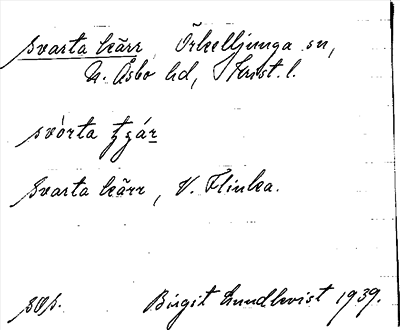 Svarta kärr Örkelljunga sn,
N. Åsbo hd, Krist. l.
svòrta
Svarta kärr, V. Flinka.
Birgit Lundkvist 1939.